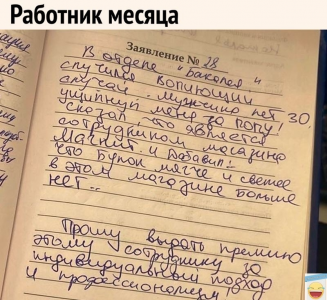 Работник месяца
Заявление № 28
В отделе "Бакалея"
случился вопиющий
случай. Мужчина лет 30.
ущипнул меня за попу!
Сказал что является
сотрудником магазина
Магнит и добавил:
что булок мягче и свежее
в этом магазине больше
нет..
Прошу выдать премию
этому сотруднику за
индивидуальный подход
и профессионализм